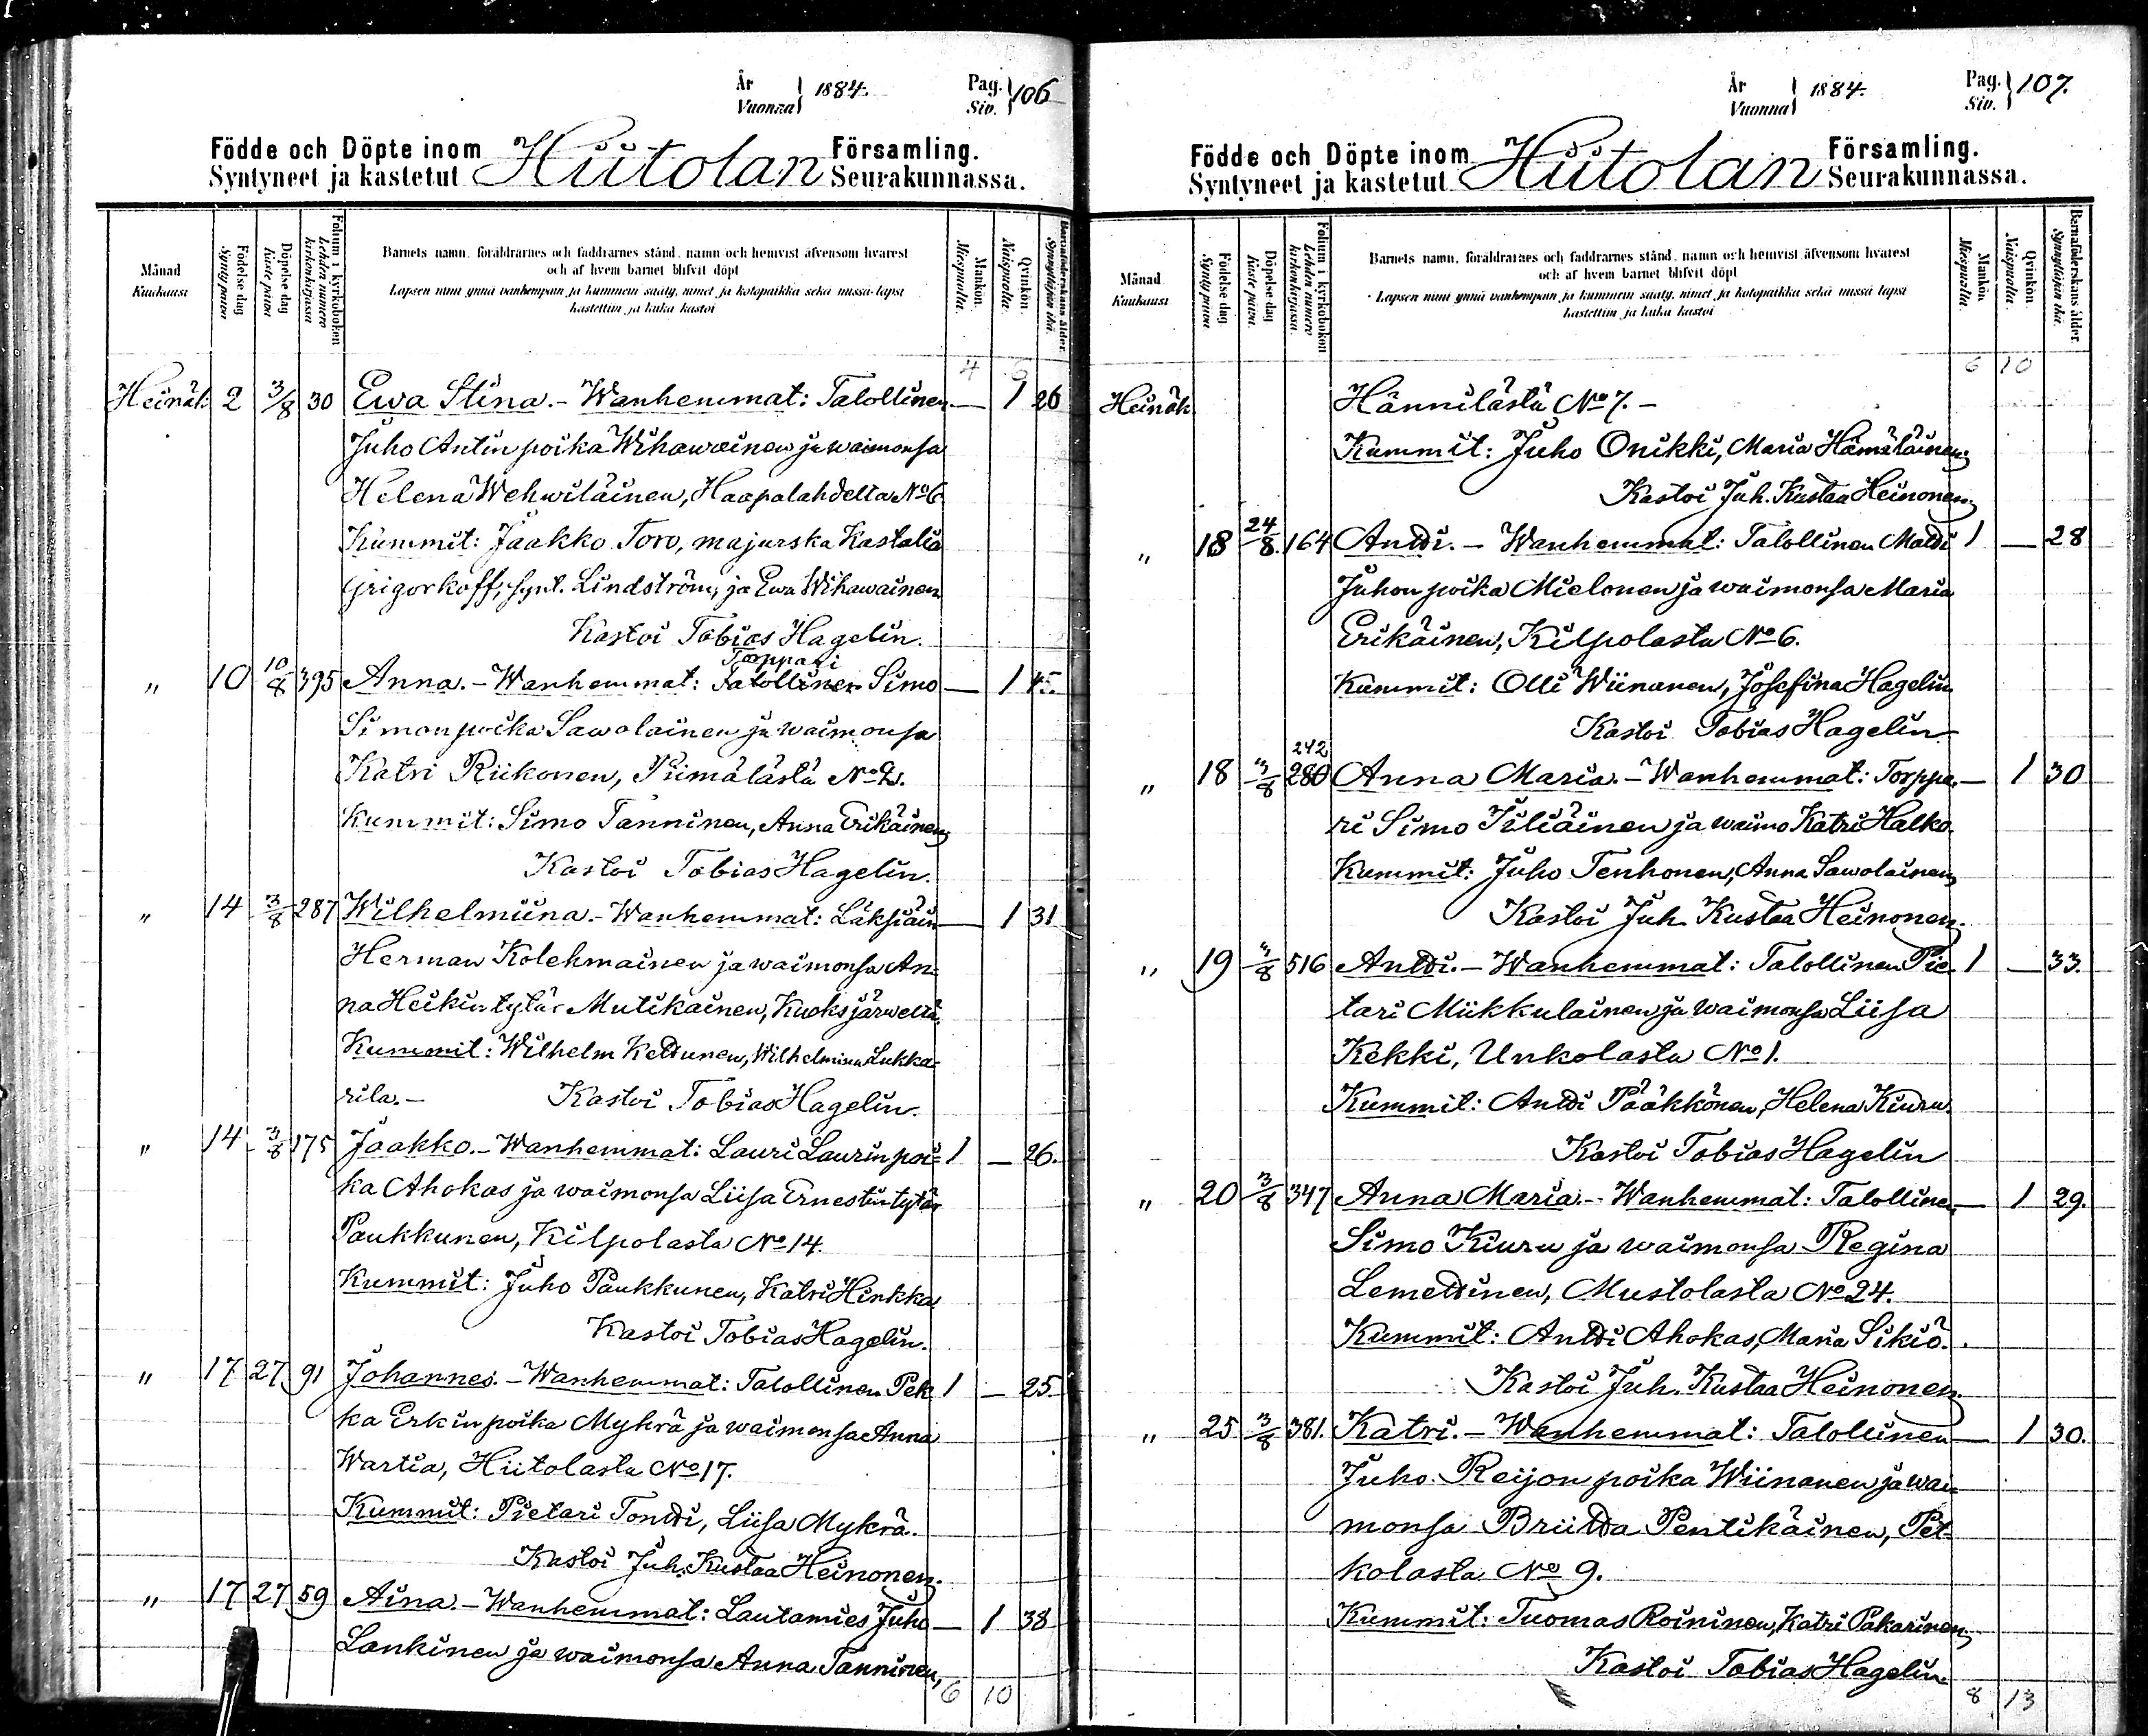 År
Vuonna } 1884.
Pag.
Siv. } 106
Födde och Döpte inom Hiitolan Församling.
Syntyneet ja kastetut Seurakunnassa.
Månad
Kuukausi
Födelse dag
Synty päivä
Döpelse dag
Kaste päivä
Folium i kyrkoboken
Lehden numero
kirkonkirjassa
Barnets namn, föräldrarnes och faddrarnes stånd, namn och hemvist äfvensom hvarest
och af hvem barnet blifvit döpt
Lapsen nimi ynnä vanhempain ja kummein sääty, nimet ja kotopaikka sekä missä lapsi
kastettiin ja kuka kastoi
Mankön.
Miespuolta.
Qvinkön.
Naispuolta.
Barnaföderskans ålder.
Synnyttäjän ikä.
4 6
Heinäk. 2 3/8 30 Ewa Stina. - Wanhemmat: Talollinen — 1 26
Juho Antinpoika Wihawainen ja waimonsa
Helena Wehwiläinen, Haapalahdelta No 6
Kummit: Jaakko Toro, majurska Kastalia
Grigorkoff, synt. Lindström, ja Ewa Wihawainen
Kastoi Tobias Hagelin.
Torppari
„ 10 10/8 395 Anna. - Wanhemmat: Talollinen Simo — 1 45.
Simonpoika Sawolainen ja waimonsa
Katri Riikonen, Tiimälästä No 2.
Kummit: Simo Tanninen, Anna Erikäinen,
Kastoi Tobias Hagelin.
„ 14 3/8 287 Wilhelmiina. - Wanhemmat: Läksiäin — 1 31
Herman Kolehmainen ja waimonsa An-
na Heikintytär Mutikainen, Kuoksjärweltä.
Kummit: Wilhelm Kettunen, Wilhelmina Lukka-
rila. - Kastoi Tobias Hagelin.
„ 14 3/8 175 Jaakko. - Wanhemmat: Lauri Laurinpoi- 1 — 26.
ka Ahokas ja waimonsa Liisa Ernestintytär
Paukkunen, Kilpolasta No 14.
Kummit: Juho Paukkunen, Katri Hinkka
Kastoi Tobias Hagelin.
„ 17 27 91 Johannes. - Wanhemmat: Talollinen Pek- 1 — 25.
ka Erkinpoika Mykrä ja waimonsa Anna
Wartia, Hiitolasta No 17.
Kummit: Pietari Tontti, Liisa Mykrä.
Kastoi Juh. Kustaa Heinonen.
„ 17 27 59 Aina. - Wanhemmat: Lautamies Juho — 1 38
Lankinen ja waimonsa Anna Tanninen,
6 10
År
Vuonna } 1884.
Pag.
Siv. } 107.
Födde och Döpte inom Hiitolan Församling.
Syntyneet ja kastetut Seurakunnassa.
Månad
Kuukausi
Födelse dag
Synty päivä
Döpelse dag
Kaste päivä.
Folium i kyrkoboken
Lehden numero
kirkonkirjassa.
Barnets namn, föräldrarnes och faddrarnes stånd, namn och hemvist äfvensom hvarest
och af hvem barnet blifvit döpt
Lapsen nimi ynnä vanhempain ja kummein sääty, nimet ja kotopaikka sekä missä lapsi
kastettiin ja kuka kastoi
Mankön
Miespuolta.
Qvinkön.
Naispuolta.
Barnaföderskans ålder.
Synnyttäjän ikä.
6 10
Heinäk Hännilästä No 7. -
Kummit: Juho Onikki, Maria Hämäläinen;
Kastoi Juh. Kustaa Heinonen;
„ 18 24/8 164 Antti. - Wanhemmat: Talollinen Matti 1 — 28
Juhonpoika Mielonen ja waimonsa Maria
Erikäinen, Kilpolasta No 6.
Kummit: Olli Wiinanen, Josefina Hagelin
Kastoi Tobias Hagelin
242
„ 18 3/8 280 Anna Maria. - Wanhemmat: Torppa- — 1 30
ri Simo Tiliäinen ja waimo Katri Halko.
Kummit: Juho Tenhonen, Anna Sawolainen,
Kastoi Juh Kustaa Heinonen.
„ 19 3/8 516 Antti. - Wanhemmat: Talollinen Pie- 1 — 33.
tari Miikkulainen ja waimonsa Liisa
Kekki, Unkolasta No 1.
Kummit: Antti Pääkkönen, Helena Kiuru.
Kastoi Tobias Hagelin
„ 20 3/8 347 Anna Maria. - Wanhemmat: Talollinen — 1 29.
Simo Kiuru ja waimonsa Regina
Lemettinen, Mustolasta No 24.
Kummit: Antti Ahokas, Maria Sikiö.
Kastoi Juh. Kustaa Heinonen.
„ 25 3/8 381. Katri. - Wanhemmat: Talollinen — 1 30.
Juho Reijonpoika Wiinanen ja wai-
monsa Briitta Pentikäinen, Pet-
kolasta No 9.
Kummit: Tuomas Roininen, Katri Pakarinen;
Kastoi Tobias Hagelin.
8 13